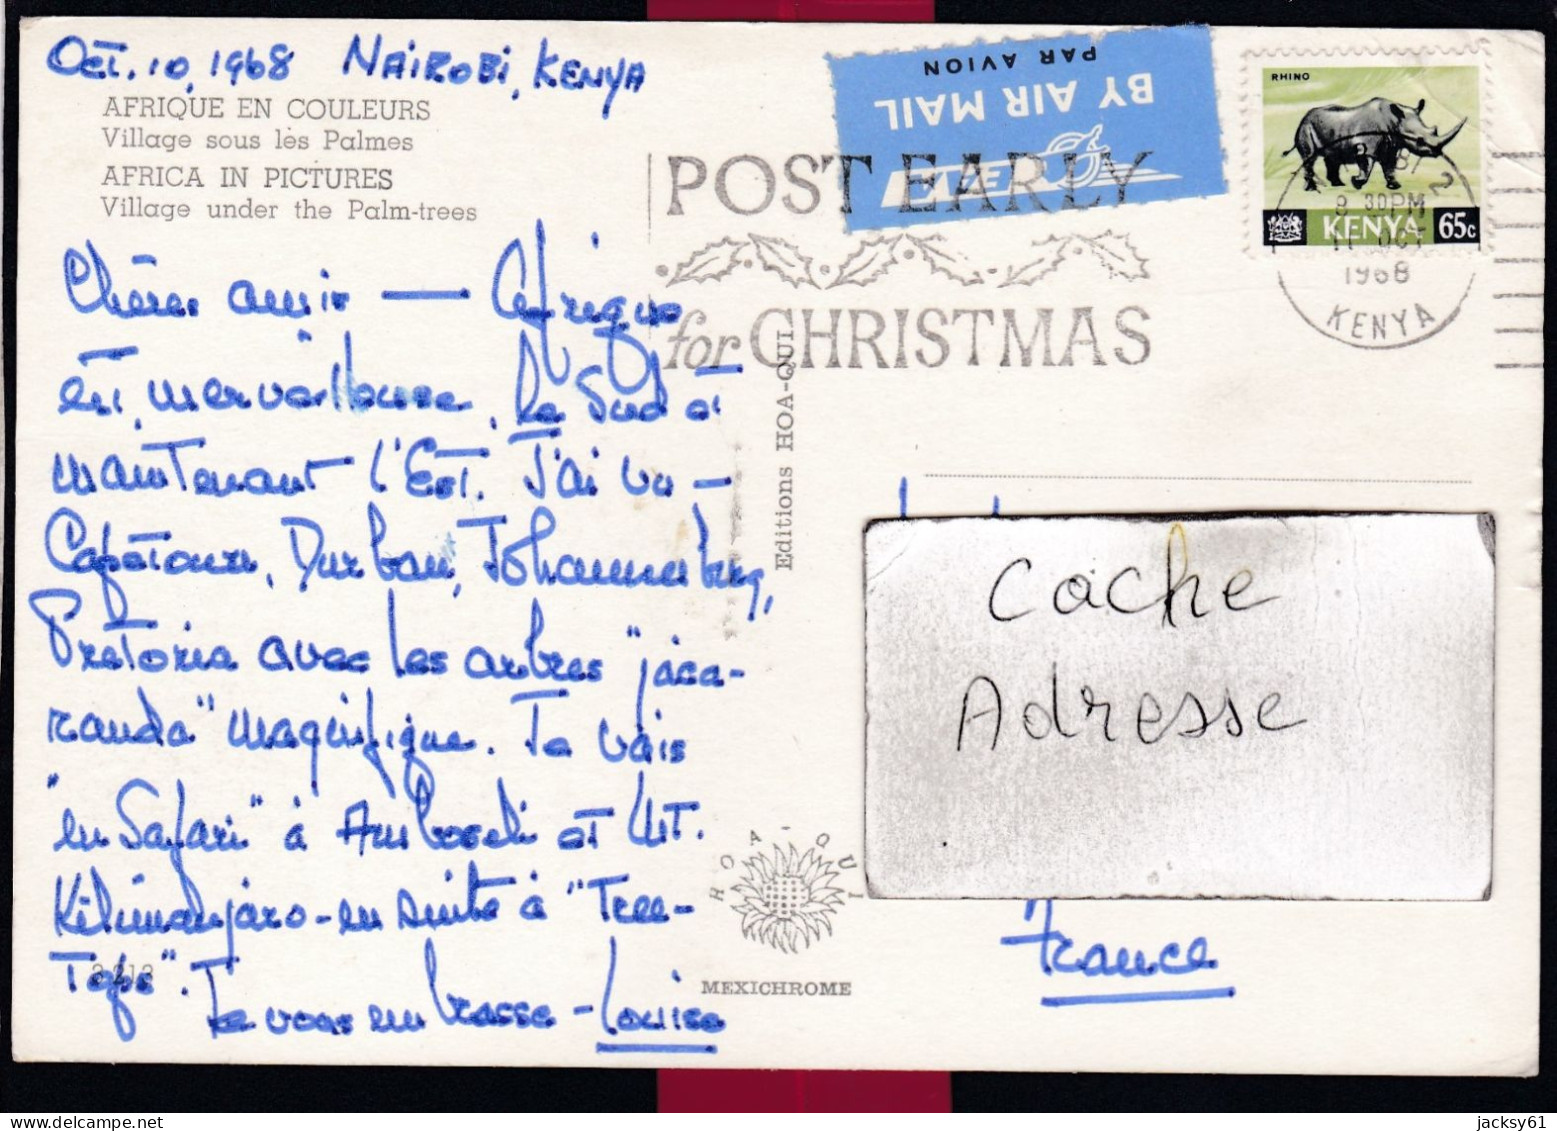 Oct. 10, 1968 NAIROBI, KENYA
AFRIQUE EN COULEURS
Village sous lès Palmes
AFRICA IN PICTURES
Village under the Palm-trees
Chères amis — Afrique
est merveilleuse, le Sud et
maintenant l'Est. J'ai vu –
Capetown, Durban, Johannesburg,
Pretoria avec les arbres "jaca-
randa" magnifique. Je vais
"en Safari" à Amboseli et Mt.
Kilimanjaro - en suite à "Tree-
Tops". Je vous embrasse – Louise
3 213
BY AIR MAIL
PAR AVION
POST EARLY
for CHRISTMAS
RHINO
KENYA 65c
8 30PM
11 OCT
1968
KENYA
Editions HOA-QUI
HOA QUI
MEXICHROME
Cache
Adresse
France
jacksy61